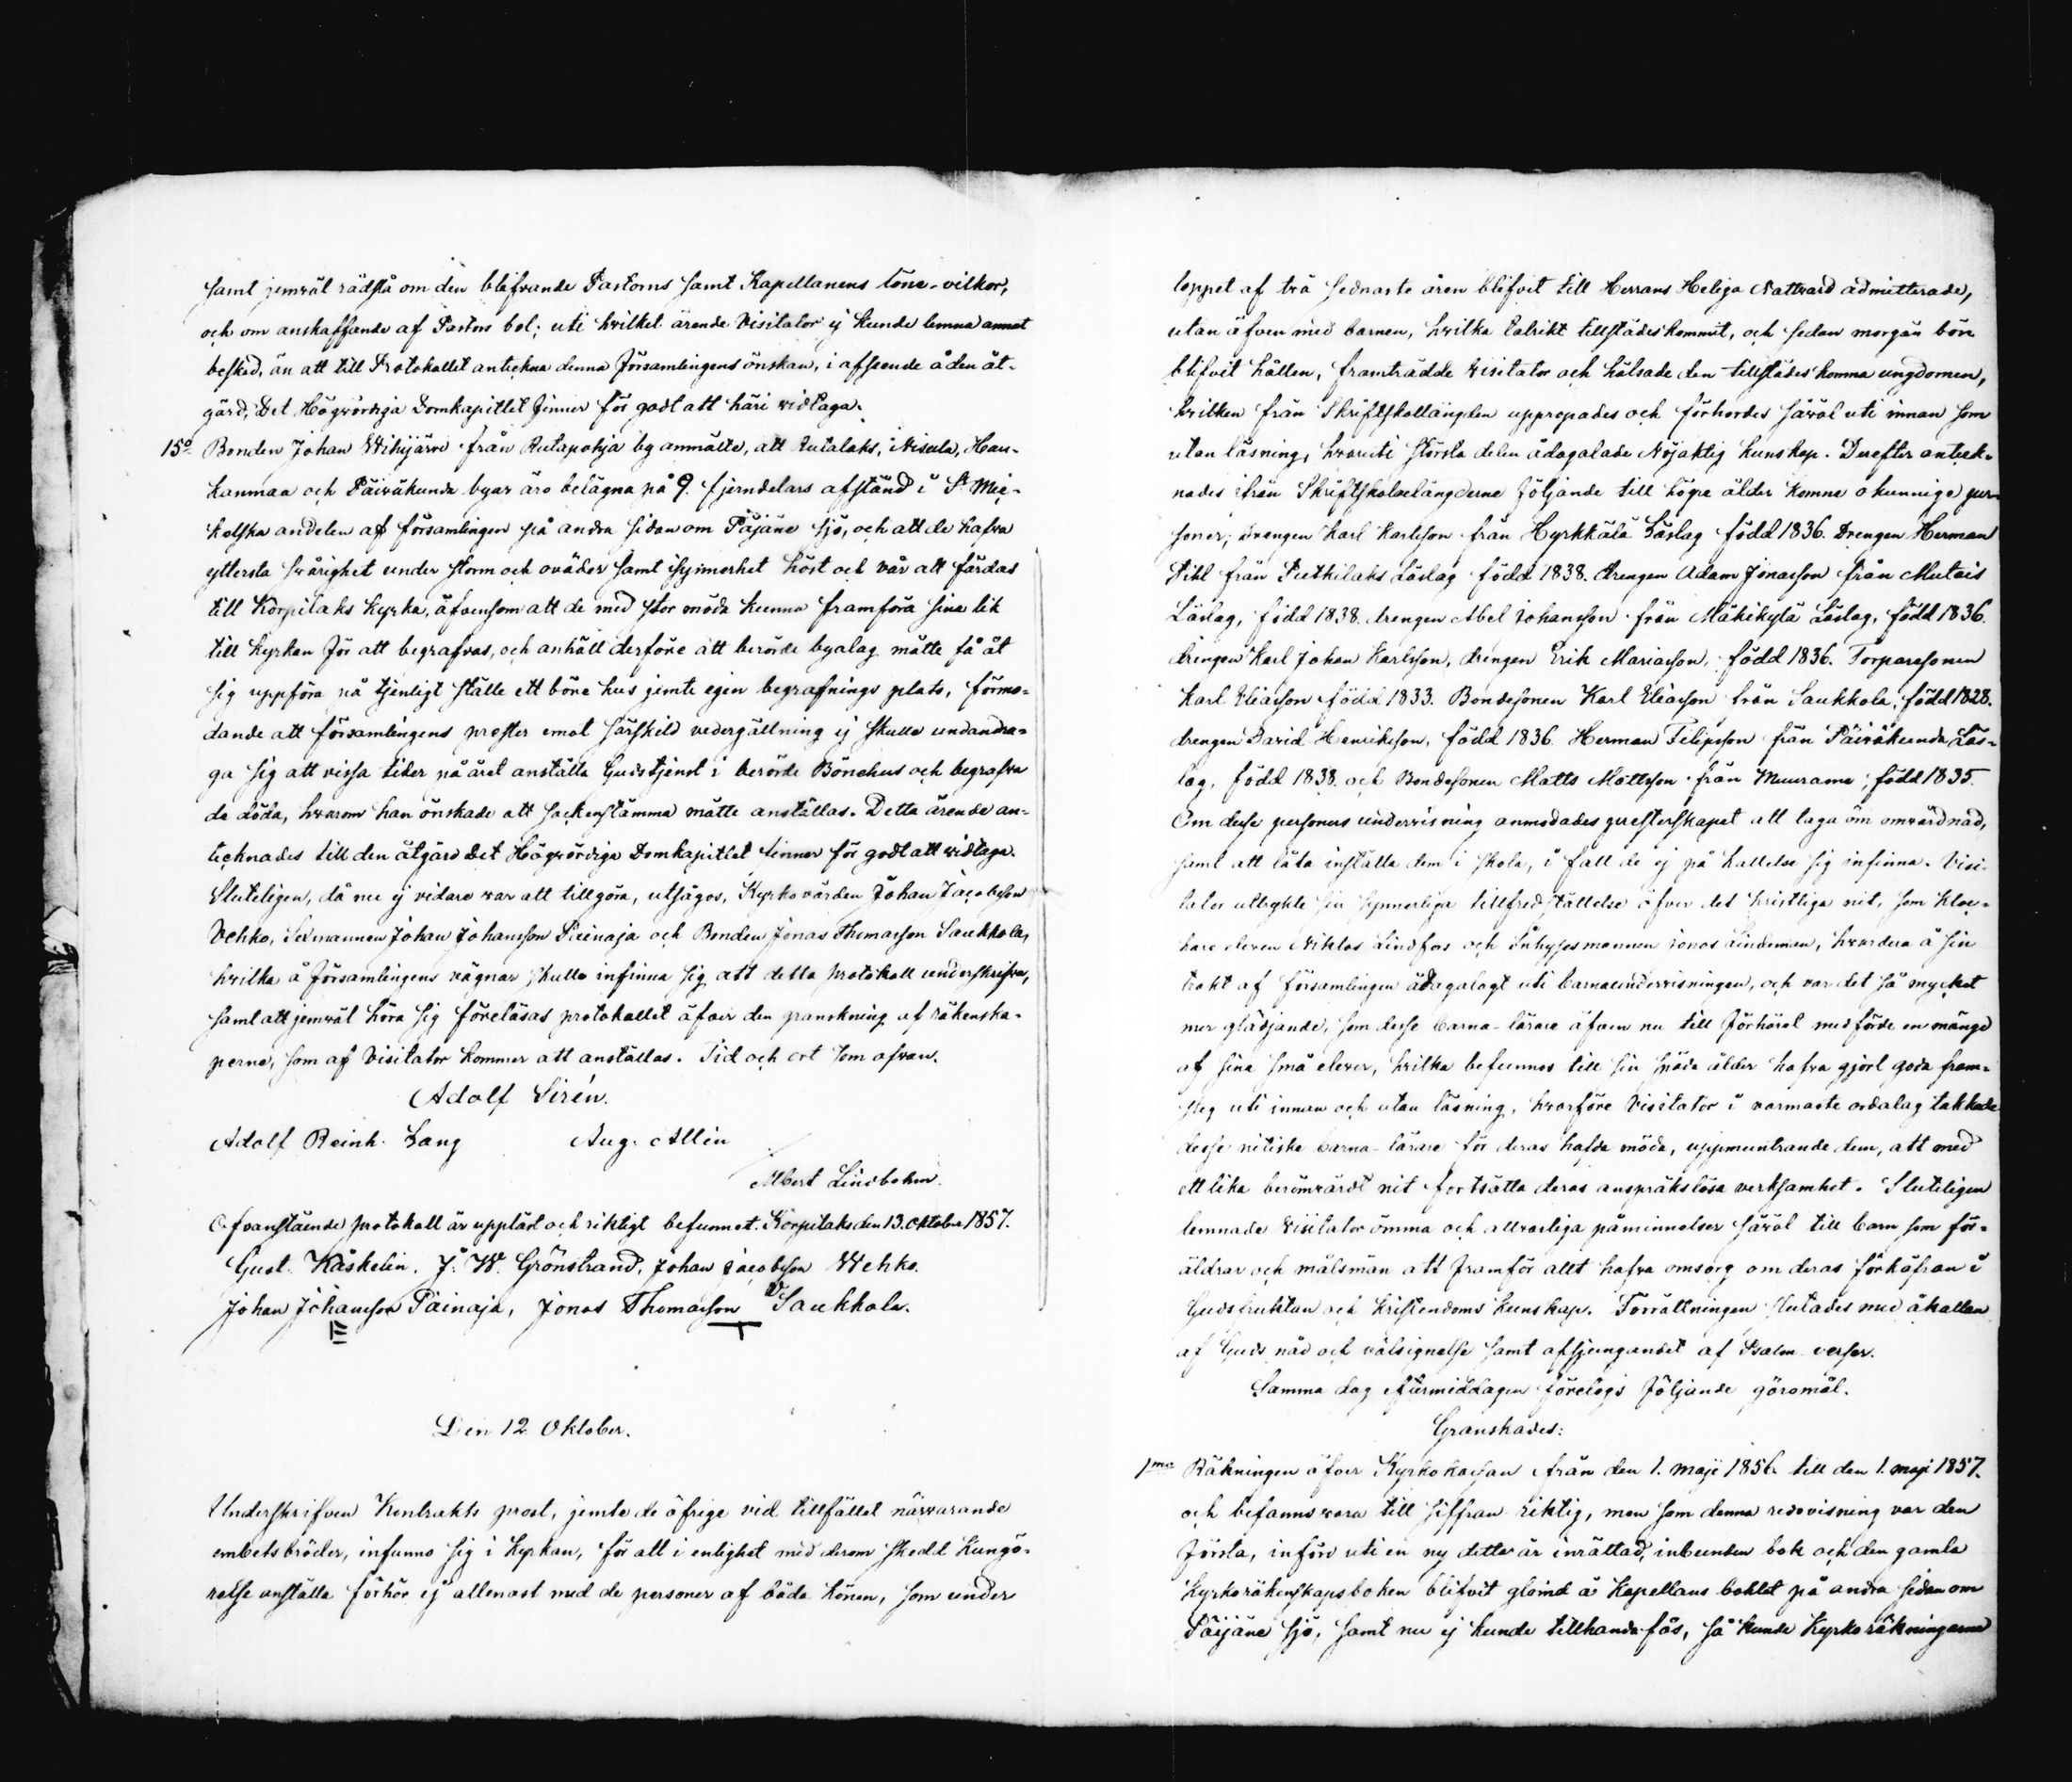 samt jemväl rådslå om den blifvande Pastorns samt Kapellanens löne-vilkor,
och om anskaffande af Pastors bol; uti hvilket ärende Visitator ej kunde lemna annat
besked, än att till Protokollet anteckna denna Församlingens önskan, i afseende å den åt-
gärd, Det Högvördiga Domkapitlet finner för godt att häri vidtaga.
15o Bonden Johan Wihijärvi från Rutapohja by anmälte, att Rutalaks, Nisula, Hau-
kanmaa och Päiväkunda byar äro belägna på 9. fjerndelars afstånd i St Mic-
kelska andelen af församlingen på andra sidan om Päjäne sjö, och att de hafva
yttersta svårighet under storm och oväder samt isynnerhet höst och vår att färdas
till Korpilaks Kyrka, äfvensom att de med stor möda kunna framföra sina lik
till kyrkan för att begrafvas, och anhåll derföre att berörde byalag måtte få åt
sig uppföra på tjenligt ställe ett böne hus jemte egen begrafnings plats, förmo-
dande att församlingens prester emot särskild vedergällning ej skulle undandra-
ga sig att vissa tider på året anställa Gudstjenst i berörde Bönehus och begrafva
de döda, hvarom han önskade att sockenstämma måtte anställas. Detta ärende an-
tecknades till den åtgärd Det Högvördiga Domkapitlet finner för godt att vidtaga.
Sluteligen, då nu ej vidare var att tillgöra, utsågos, Kyrkovärden Johan Jacobsson
Vehko, Sexmannen Johan Johansson Päinaja och Bonden Jonas Thomasson Saukkola,
hvilka å Församlingens vägnar skulle infinna sig att detta protokoll underskrifva,
samt att jemväl höra sig föreläsas protokollet äfver den granskning af räkenska-
perne, som af Visitator kommer att anställas. Tid och ort som ofvan.
Adolf Sirén.
Adolf Reinh. Lang Aug. Allén
Albert Lindbohm.
Ofvanstående protokoll är uppläst och riktigt befunnet. Korpilaks den 13. Oktober 1857.
Gust. Käskelin. J. W. Grönstrand, Johan Jacobsson Wehko.
Johan Johansson Päinaja, Jonas Thomasson Saukkola.
Den 12 Oktober.
Underskrifven Kontrakts prost, jemte de öfrige vid tillfället närvarande
embetsbröder, infunno sig i Kyrkan, för att i enlighet med derom skedd Kungö-
relse anställa förhör ej allenast med de personer af båda könen, som under
loppet af två sednaste åren blifvit till Herrans Heliga Nattvard admitterade,
utan äfven med barnen, hvilka talrikt tillstädeskommit, och sedan morgon bön
blifvit hållen, framträdde Visitator och hälsade den tillstädeskomna ungdomen,
hvilken från Skriftskollängden uppropades och förhördes såväl uti innan som
utan läsning, hvaruti största delen ådagalade Nöjaktig kunskap. Derefter anteck-
nades ifrån Skriftskolelängderne följande till högre ålder komne okunnige per-
soner; Drengen Karl Karlsson från Hyrkkälä Läslag född 1836. Drengen Herman
från Putkilaks Läslag född 1838. drengen Adam Jonasson från Mutais
Läslag, född 1838. drengen Abel Johansson från Mäkikylä Läslag, född 1836.
drengen Karl Johan Karlsson, drengen Erik Mariasson, född 1836. Torparesonen
Karl Eliasson född 1833. Bondesonen Karl Eliasson från Saukkola, född 1828.
drengen David Henriksson, född 1836. Herman Filipsson från Päiväkunda Läs-
lag, född 1838. och Bondesonen Matts Mattsson från Muurame, född 1835.
Om desse personers undervisning anmodades presterskapet att taga öm omvårdnad,
samt att låta inställa dem i skola, i fall de ej på kallelse sig infinna. Visi-
tator uttryckte sin synnerliga tillfredsställelse öfver det kristliga nit, som kloc-
kare eleven Niklas Lindfors och Inhysesmannen Jonas Lindeman, hvardera å sin
trakt af församlingen ådagalagt uti barnaundervisningen, och var det så mycket
mer glädjande, som desse barna-lärare äfven nu till förhöret medförde en mängd
af sina små elever, hvilka befunnos till sin späda ålder hafva gjort goda fram-
steg uti innan och utan läsning, hvarföre Visitator i varmaste ordalag tackade
desse nitiske barna-lärare för deras hafda möda, uppmuntrande dem, att med
ett lika berömvärdt nit fortsätta deras anspråkslösa verksamhet. Sluteligen
lemnade Visitator ömma och allvarliga påminnelser såväl till barn som för-
äldrar och målsmän att framför allt hafva omsorg om deras förkofran i
Gudsfruktan och kristendoms kunskap. Förrättningen slutades med åkallan
af Guds nåd och välsignelse samt afsjungandet af Psalm verser.
Samma dag eftermiddagen företogs följande göromål.
Granskades:
1mo Räkningen öfver Kyrkokassan från den 1. maji 1856. till den 1. maji 1857.
och befanns vara till siffran riktig, men som denna redovisning var den
första, införd uti en ny detta år inrättad, inbunden bok och den gamla
kyrkoräkenskapsboken blifvit glömd å Kapellans bohlet på andra sidan om
Päijäne sjö, samt nu ej kunde tillhandafås, så kunde Kyrkoräkningarne